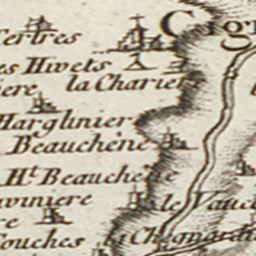 Tertres
Cign
es Hwets
iere la Charier
Harglinier
Beauchêne
Ht. Beauchêne
winiere le Vauc
re
Couches la Chegnardi